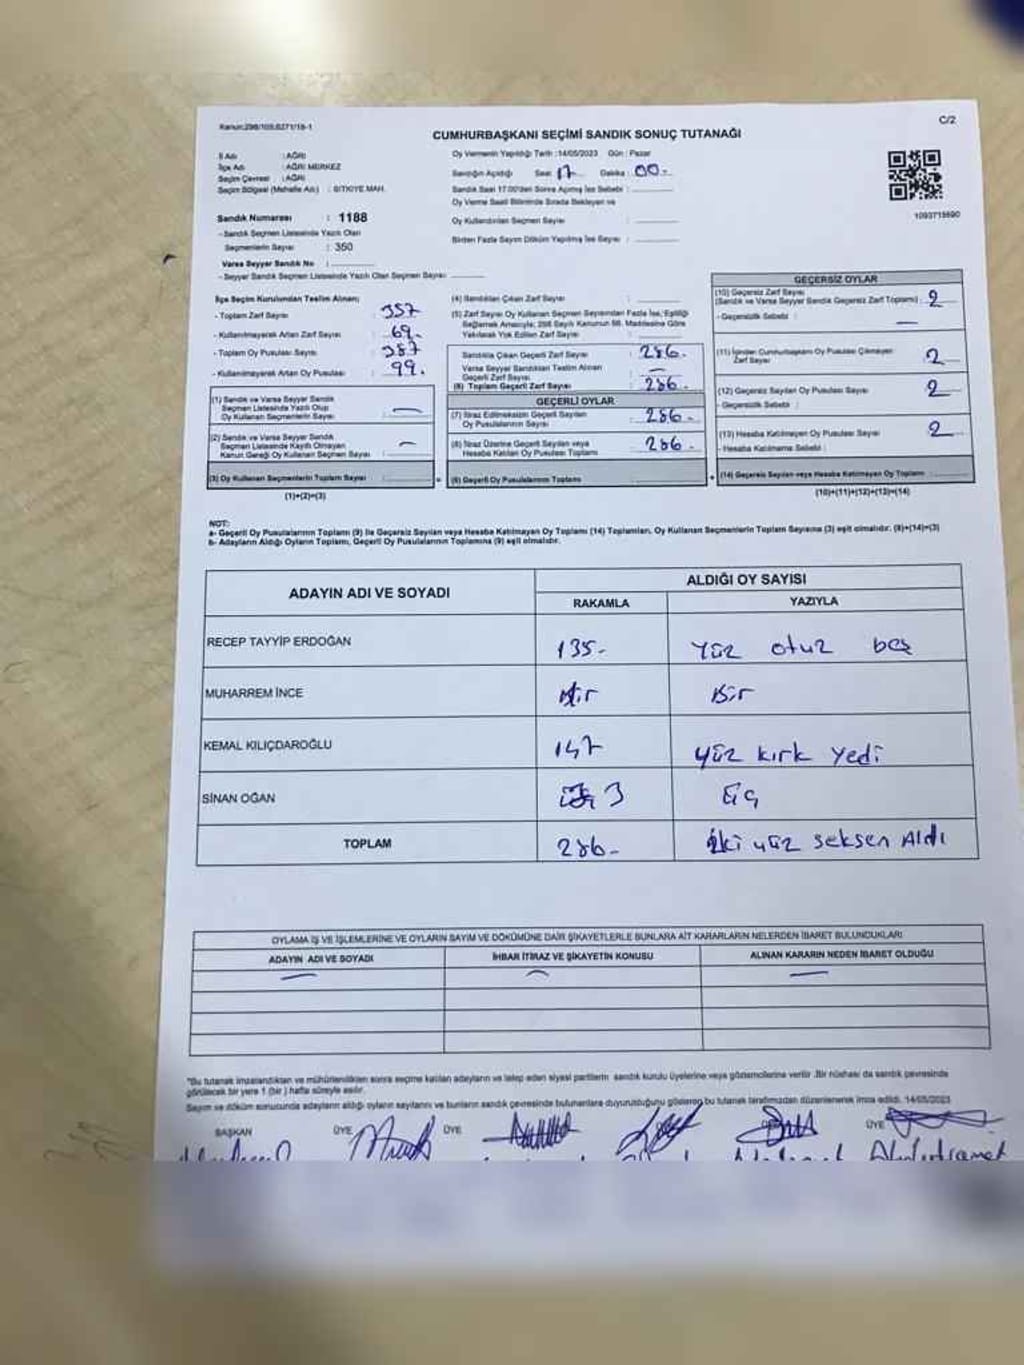 Kanun:298/105,6271/18-1
C/2
CUMHURBAŞKANI SEÇİMİ SANDIK SONUÇ TUTANAĞI
İl Adı : AĞRI
İlçe Adı : AĞRI MERKEZ
Seçim Çevresi : AĞRI
Seçim Bölgesi (Mahalle Adı) : SITKIYE MAH.
Oy Vermenin Yapıldığı Tarih :14/05/2023 Gün : Pazar
Sandığın Açıldığı Saat 17 Dakika : 00-
Sandık Saat 17.00'den Sonra Açılmış İse Sebebi :
Oy Verme Saati Bitiminde Sırada Bekleyen ve
Oy Kullandırılan Seçmen Sayısı :
Birden Fazla Sayım Döküm Yapılmış İse Sayısı :
1093715690
Sandık Numarası : 1188
- Sandık Seçmen Listesinde Yazılı Olan
Seçmenlerin Sayısı : 350
Varsa Seyyar Sandık No :
- Seyyar Sandık Seçmen Listesinde Yazılı Olan Seçmen Sayısı
İlçe Seçim Kurulundan Teslim Alınan;
- Toplam Zarf Sayısı : 357
- Kullanılmayarak Artan Zarf Sayısı : 69.
- Toplam Oy Pusulası Sayısı : 387
- Kullanılmayarak Artan Oy Pusulası : 99.
(1) Sandık ve Varsa Seyyar Sandık
Seçmen Listesinde Yazılı Olup
Oy Kullanan Seçmenlerin Sayısı :
(2) Sandık ve Varsa Seyyar Sandık
Seçmen Listesinde Kayıtlı Olmayan
Kanun Gereği Oy Kullanan Seçmen Sayısı :
(3) Oy Kullanan Seçmenlerin Toplam Sayısı :
(1)+(2)=(3)
(4) Sandıktan Çıkan Zarf Sayısı :
(5) Zarf Sayısı Oy Kullanan Seçmen Sayısından Fazla İse, Eşitliği
Sağlamak Amacıyla; 298 Sayılı Kanunun 98. Maddesine Göre
Yakılarak Yok Edilen Zarf Sayısı :
Sandıkta Çıkan Geçerli Zarf Sayısı : 286.
Varsa Seyyar Sandıktan Teslim Alınan
Geçerli Zarf Sayısı : —
(6) Toplam Geçerli Zarf Sayısı : 286.
GEÇERLİ OYLAR
(7) İtiraz Edilmeksizin Geçerli Sayılan
Oy Pusulalarının Sayısı : 286-
(8) İtiraz Üzerine Geçerli Sayılan veya
Hesaba Katılan Oy Pusulası Toplamı : 286-
(9) Geçerli Oy Pusulalarının Toplamı :
GEÇERSİZ OYLAR
(10) Geçersiz Zarf Sayısı
(Sandık ve Varsa Seyyar Sandık Geçersiz Zarf Toplamı) : 2
- Geçersizlik Sebebi : —
(11) İçinden Cumhurbaşkanı Oy Pusulası Çıkmayan
Zarf Sayısı : 2
(12) Geçersiz Sayılan Oy Pusulası Sayısı : 2
- Geçersizlik Sebebi :
(13) Hesaba Katılmayan Oy Pusulası Sayısı : 2
- Hesaba Katılmama Sebebi :
(14) Geçersiz Sayılan veya Hesaba Katılmayan Oy Toplamı :
(10)+(11)+(12)+(13)=(14)
NOT:
a- Geçerli Oy Pusulalarının Toplamı (9) ile Geçersiz Sayılan veya Hesaba Katılmayan Oy Toplamı (14) Toplamları, Oy Kullanan Seçmenlerin Toplam Sayısına (3) eşit olmalıdır. (9)+(14)=(3)
b- Adayların Aldığı Oyların Toplamı, Geçerli Oy Pusulalarının Toplamına (9) eşit olmalıdır.
ADAYIN ADI VE SOYADI
ALDIĞI OY SAYISI
RAKAMLA YAZIYLA
RECEP TAYYİP ERDOĞAN 135- Yüz otuz beş
MUHARREM İNCE Bir Bir
KEMAL KILIÇDAROĞLU 147 yüz kırk yedi
SİNAN OĞAN 3 Üç
TOPLAM 286- İki yüz seksen Aldı
OYLAMA İŞ VE İŞLEMLERİNE VE OYLARIN SAYIM VE DÖKÜMÜNE DAİR ŞİKAYETLERLE BUNLARA AİT KARARLARIN NELERDEN İBARET BULUNDUKLARI
ADAYIN ADI VE SOYADI İHBAR İTİRAZ VE ŞİKAYETİN KONUSU ALINAN KARARIN NEDEN İBARET OLDUĞU
*Bu tutanak imzalandıktan ve mühürlendikten sonra seçime katılan adayların ve talep eden siyasi partilerin sandık kurulu üyelerine veya gözlemcilerine verilir .Bir nüshası da sandık çevresinde
görülecek bir yere 1 (bir ) hafta süreyle asılır.
Sayım ve döküm sonucunda adayların aldığı oyların sayılarını ve bunların sandık çevresinde bulunanlara duyurulduğunu gösteren bu tutanak tarafımızdan düzenlenerek imza edildi. 14/05/2023
BAŞKAN ÜYE ÜYE ÜYE